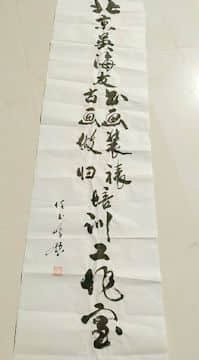 北京吴海友
书画装裱
古画做旧
培训工作室
任玉岭题